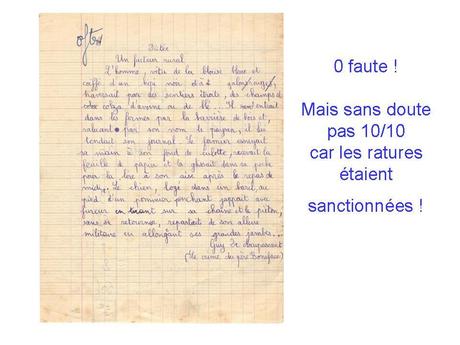 oftm
Dictée
Un facteur rural
L'homme, vêtu de la blouse bleue et
coiffé d'un képi noir
traversait par des sentiers étroits, des champs d
colza d'avoine ou de blé... Il entrait
dans les fermes par la barrière de bois et,
saluant par son nom le paysan, il lui
tendait son journal. Le fermier essuyait
sa main à son fond de culotte, recevait la
feuille de papier et la glissait dans sa poche
pour la lire à son aise après le repas de
midi. Le chien, logé dans un baril, au
pied d'un pommier penchant, jappait avec
fureur en tirant sur sa chaîne et le piéton,
sans se retourner, repartait de son allure
militaire en allongeant ses grandes jambes...
Guy de Maupassant
(Le crime du père Boniface)
0 faute !
Mais sans doute
pas 10/10
car les ratures
étaient
sanctionnées !